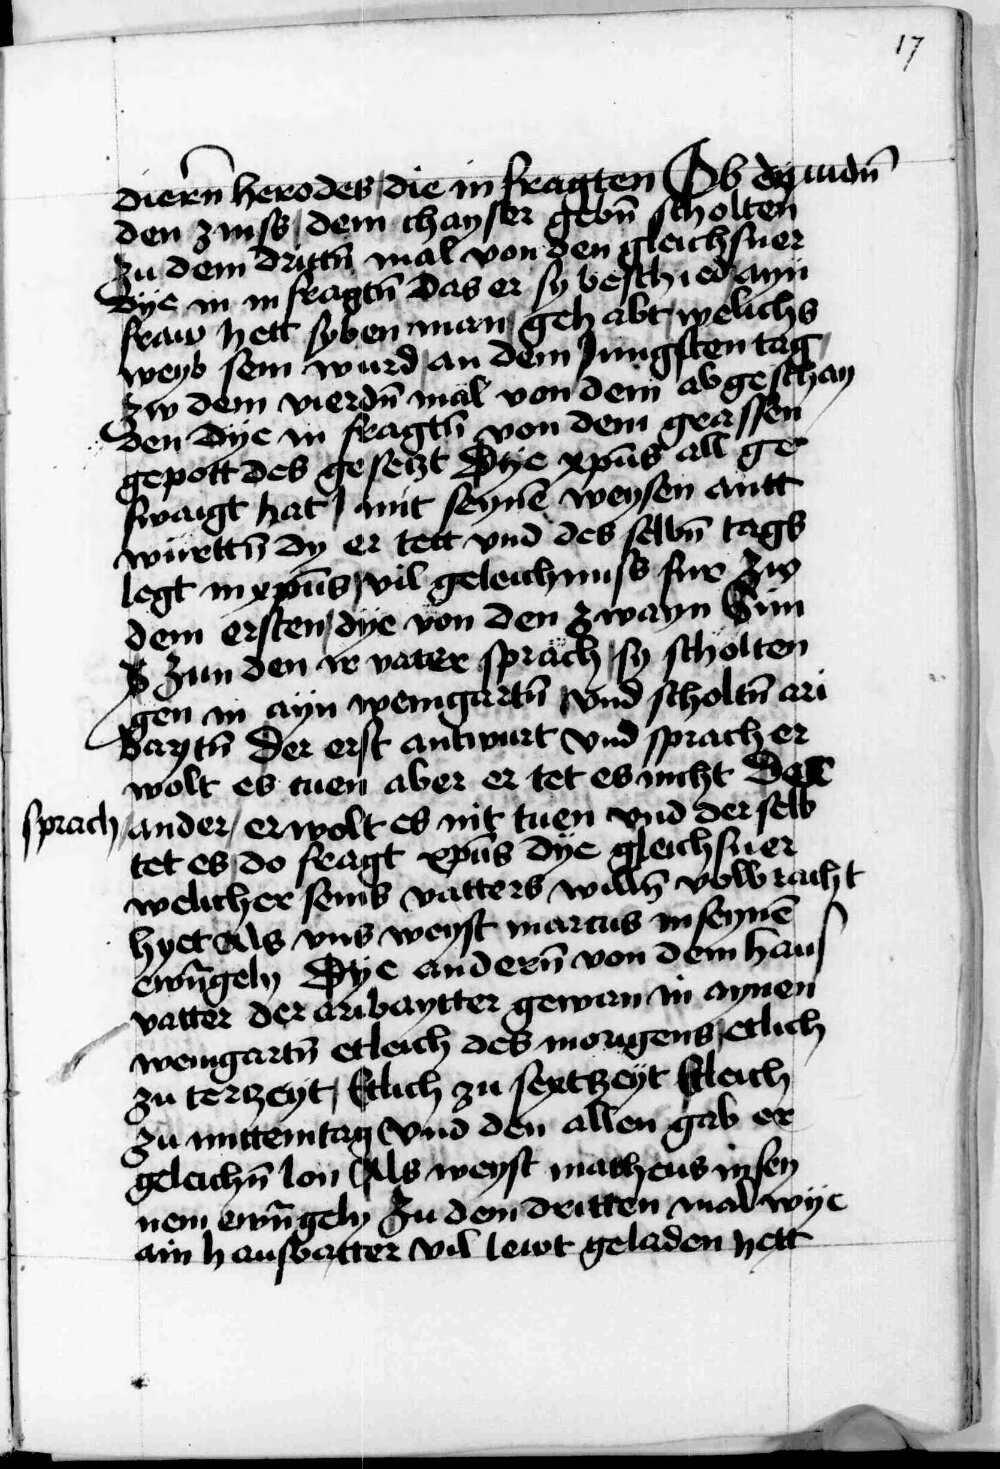 17
dierñ herodes / die in fragten Ob dy iudñ
den zinss / dem chayser gebñ scholten
zu dem drittñ mal von den gleichsner
dye in in fragtñ das er sy beschied ayn
fraw hett syben man / gehabt / welichs
weyb sein wurd / an dem Jungsten tag /
zw dem vierdñ mal von dem abgeschay
den dye in fragtñ von dem grassen
gepott des gesetzt Dye xp̄us all ge
swaigt hat / mit seynē weysen antt
wurttñ dy er tett vnd des selbñ tags
legt in xp̄us / vil geleichnuss fur zw
dem ersten / dye von den zwayn Sün
zun den ir vater sprach / sy scholten
gen in ayn weingartñ vnd scholtñ ari
baytñ Der erst antwurt vnd sprach er
wolt es tuen aber er tet es nicht Der
sprach / ander / er wolt es nit tuen vnd der selb
tet es / do fragt xp̄us dye gleichsner
welicher seins vatters willñ volbracht
hyet Als vns weyst marcus in seynē
ewñgely Dye anderñ von dem haus
vatter der aribaytter gewan in aynen
weingartñ etleich des morigens / etlich
zu tertzeyt / Etlich zu sextzeyt Etleich
zu mittemtag vnd den allen gab er
geleichñ lon Als weyst matheus in sey
nem ewñgely Zu dem dritten mal wye
ain hausvatter vil lewt geladen hett